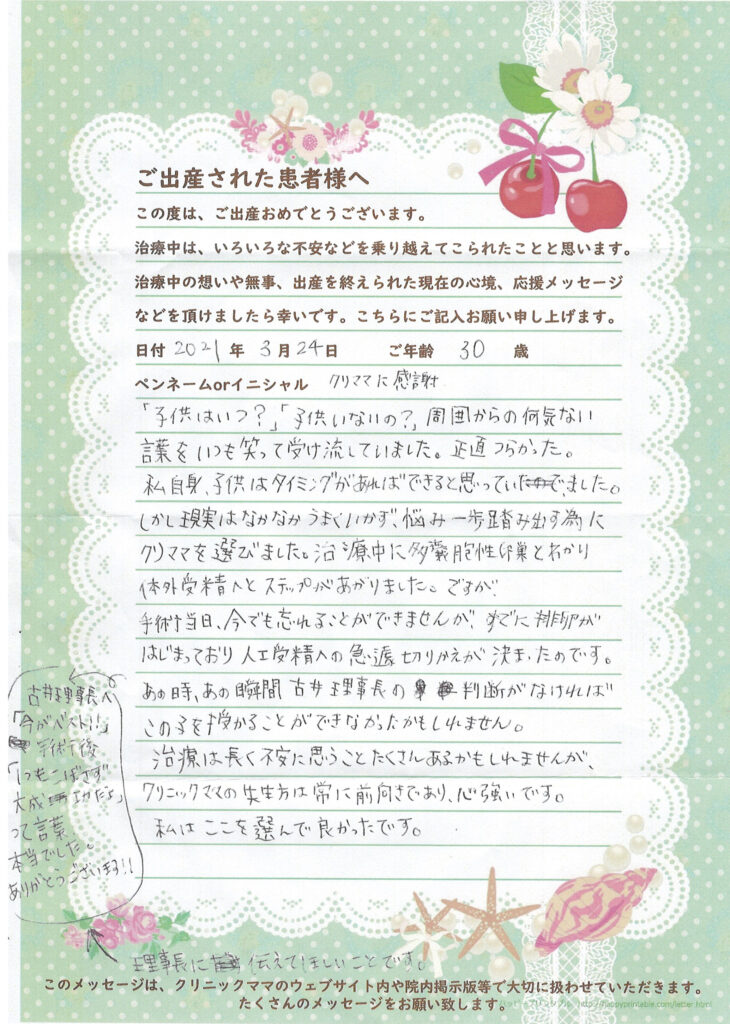 ご出産された患者様へ
この度は、ご出産おめでとうございます。
治療中は、いろいろな不安などを乗り越えてこられたことと思います。
治療中の想いや無事、出産を終えられた現在の心境、応援メッセージ
などを頂けましたら幸いです。こちらにご記入お願い申し上げます。
日付 2021 年 3月 24日 ご年齢 30 歳
ペンネームorイニシャル クリママに感謝
「子供はいつ?」「子供いないの?」周囲からの何気ない
言葉をいつも笑って受け流していました。正直つらかった。
私自身、子供はタイミングがあればできると思っていました。
しかし現実はなかなかうまくいかず、悩み一歩踏み出す為に
クリママを選びました。治療中に多嚢胞性卵巣とわかり
体外受精へとステップがあがりました。ですが、
手術当日、今でも忘れることができませんが、すでに排卵が
はじまっており人工受精への急遽切りかえが決まったのです。
あの時、あの瞬間 古井理事長の判断がなければ
この子を授かることができなかったかもしれません。
治療は長く不安に思うことたくさんあるかもしれませんが、
クリニックママの先生方は常に前向きであり、心強いです。
私はここを選んで良かったです。
古井理事長へ
「今がベスト!!」
手術後
「いつもこぼさず
大成功だよ」
って言葉
本当でした。
ありがとうございます!!
理事長に伝えてほしいことです。
このメッセージは、クリニックママのウェブサイト内や院内掲示版等で大切に扱わせていただきます。
たくさんのメッセージをお願い致します。
ハッピープリンタブル http://happyprintable.com/letter.html